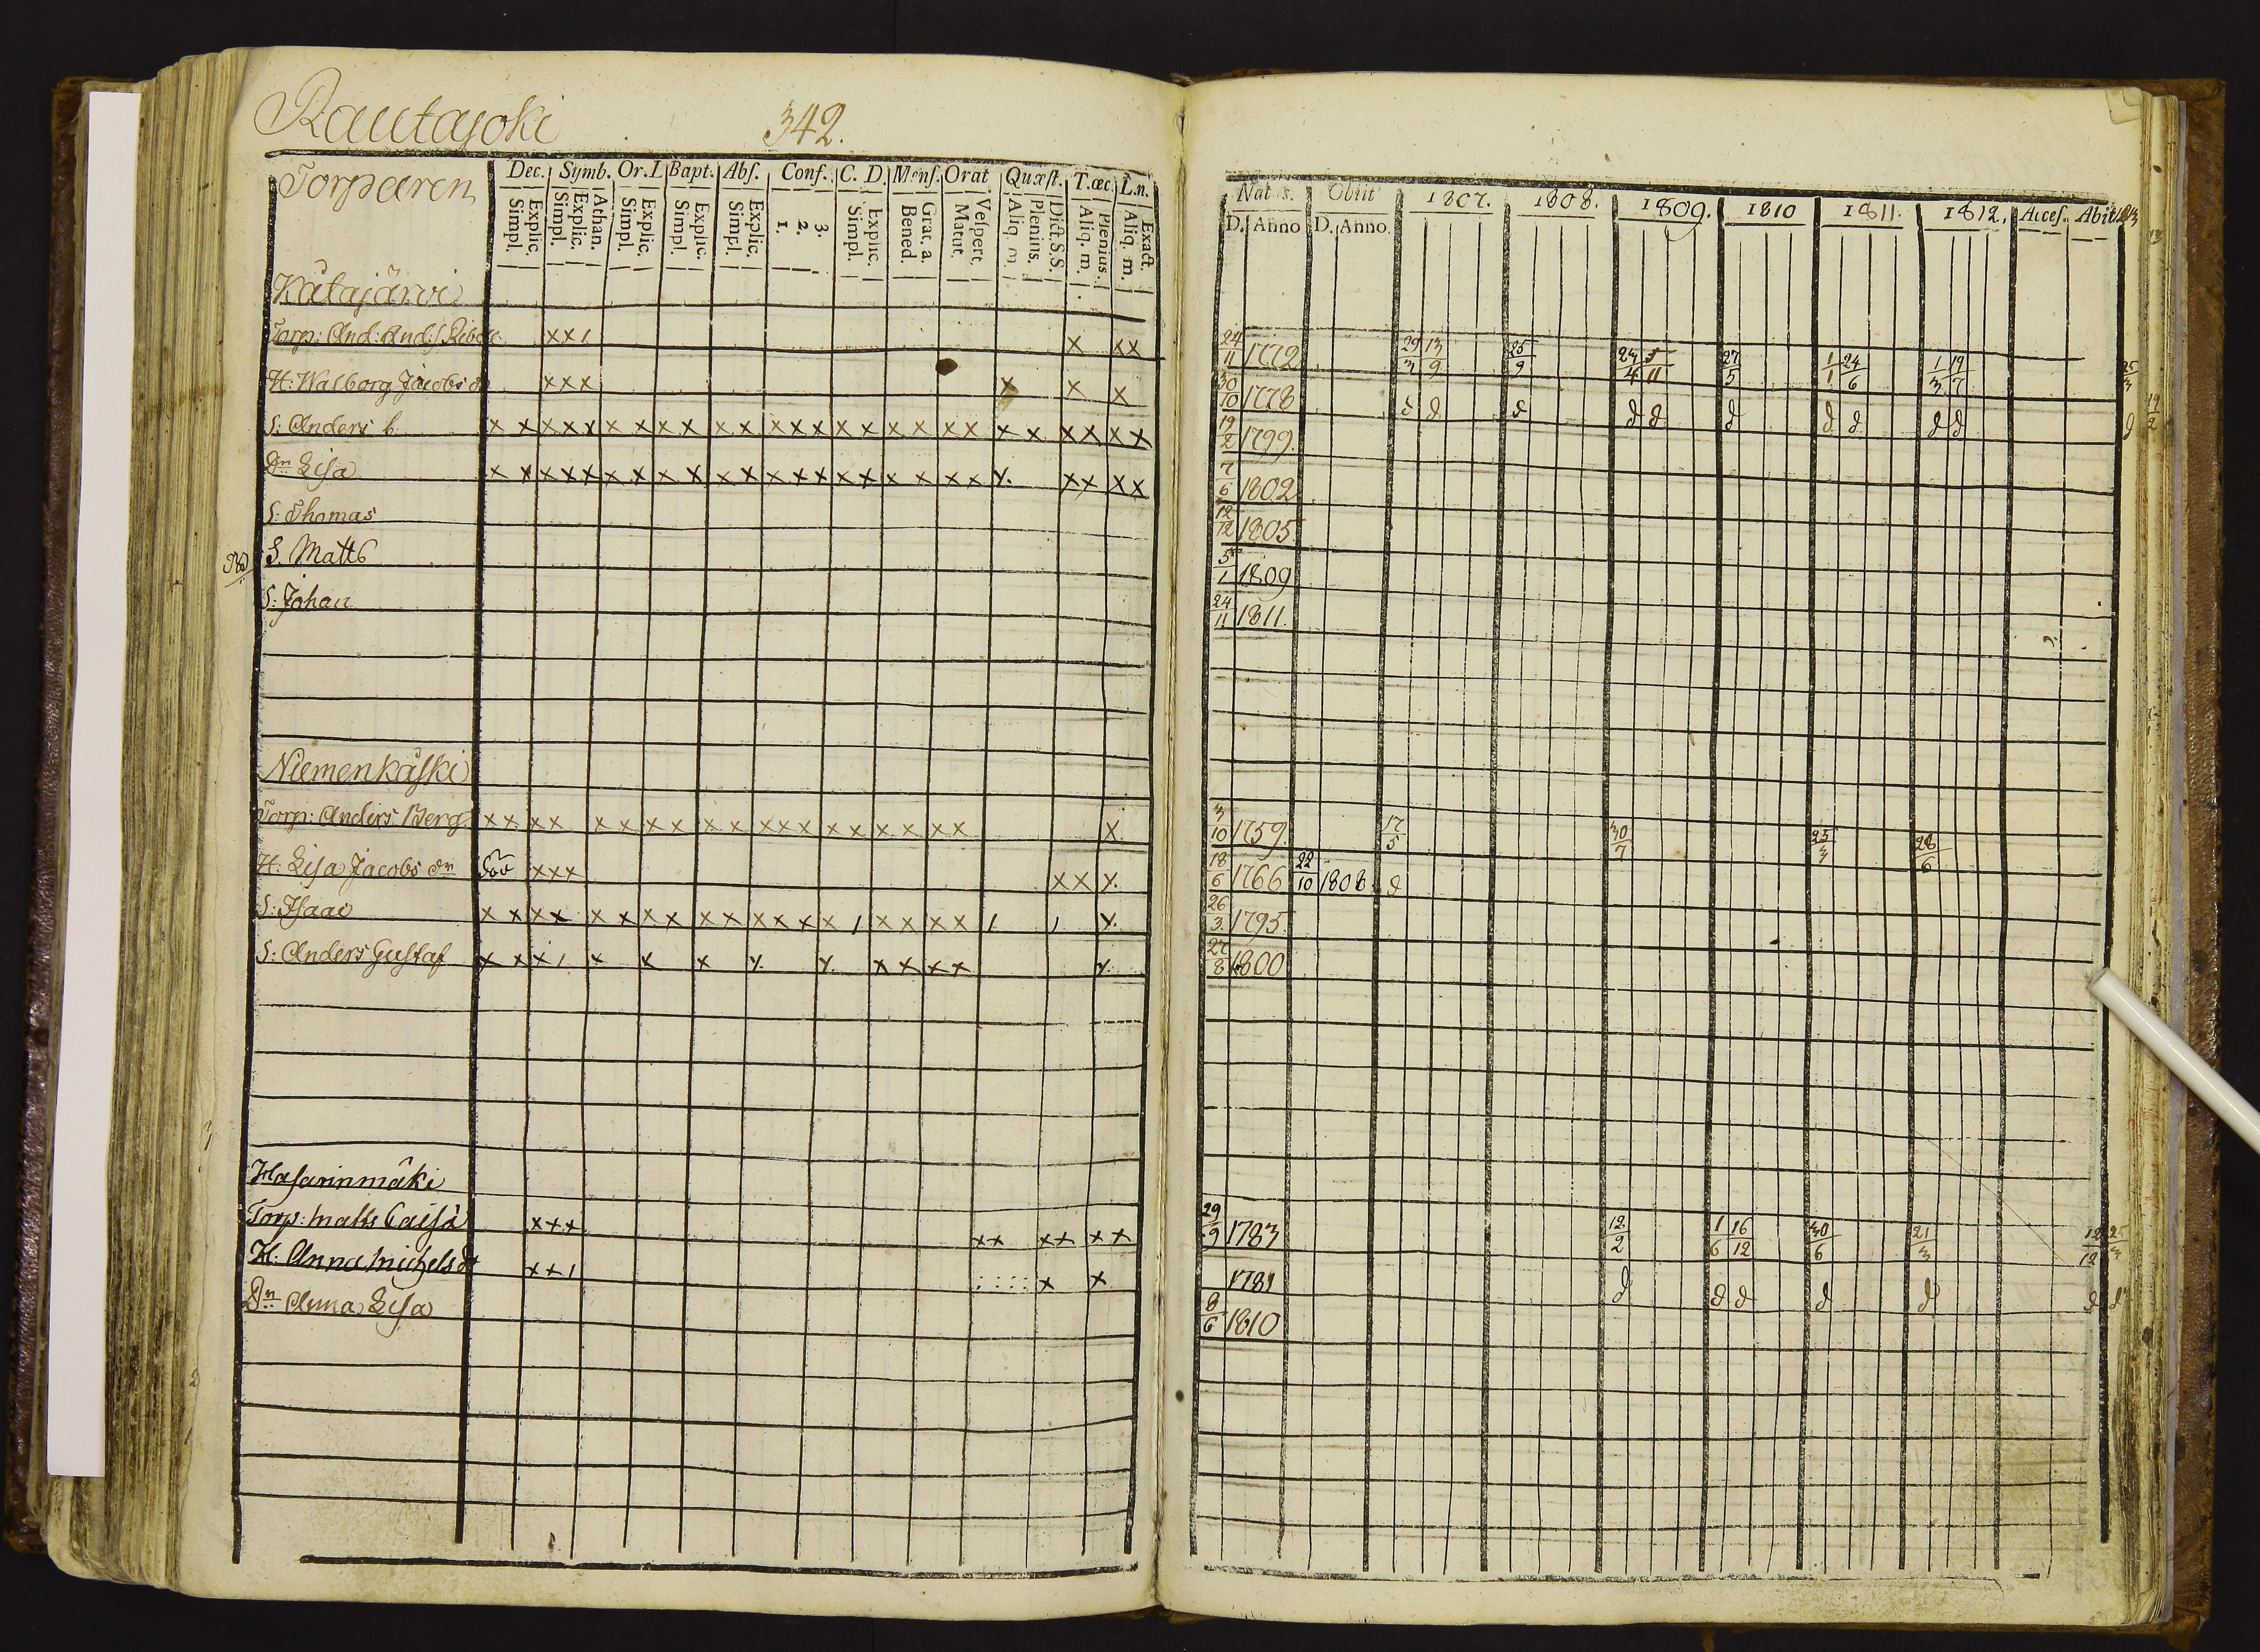 Rautajoki 342.
Torparen Dec. Symb. Or. I. Bapt. Abs. Conf. C. D. Mens. Orat. Quæst. T. œc. L. n.
Simpl. Explic. Simpl. Explic. Athan. Simpl. Explic. Simpl. Explic. Simpl. Explic. 1. 2. 3. Simpl. Explic. Bened. Grat. a. Matut. Vespert. Aliq. m. Plenius. Dict. S. S. Aliq. m. Plenius. Aliq. m. Exact.
Kätajärvi
Torp: And: And:s x x 1 x x x
H: Walborg Jacobs dr x x x x x x
S: Anders x x x x x x x x x x x x x x x x x x x x x x x x x x
Dr Lisa x x x x x x x x x x x x x x x x x x x x x x x x x
S: Thomas
S. Matts
S: Johan
Niemenkäski
Torp: Anders Berg x x x x x x x x x x x x x x x x x x x
H: Lisa Jacobs dr x x x x x x
S: Isaac x x x x x x x x x x x x x x 1 x x x x 1 1 x
S: Anders Gustaf x x x 1 x x x x x x x x x x
Hasarinmäki
Torp: Matts x x x x x x x x x
H: Anna Michels dr x x 1 x x
Dr Anna Lisa
Natus. Obiit 1807. 1808. 1809. 1810 1811. 1812. Acces. Abiit 1813
D. Anno D. Anno.
24/11 1772 29/3 13/9 25/9 23/4 5/11 27/5 1/1 24/6 1/3 19/7 25/3
30/10 1778 d d d d d d d d d d d 19/2
19/2 1799.
7/6 1802
12/12 1805
5/1 1809
24/11 1811.
3/10 1759. 17/5 30/7 25/3 28/6
18/6 1766 22/10 1808. d
26/3 1795
27/8 1800
29/9 1783 12/2 1/6 16/12 30/6 21/3 12/12 25/3
1781 d d d d d d d
8/6 1810